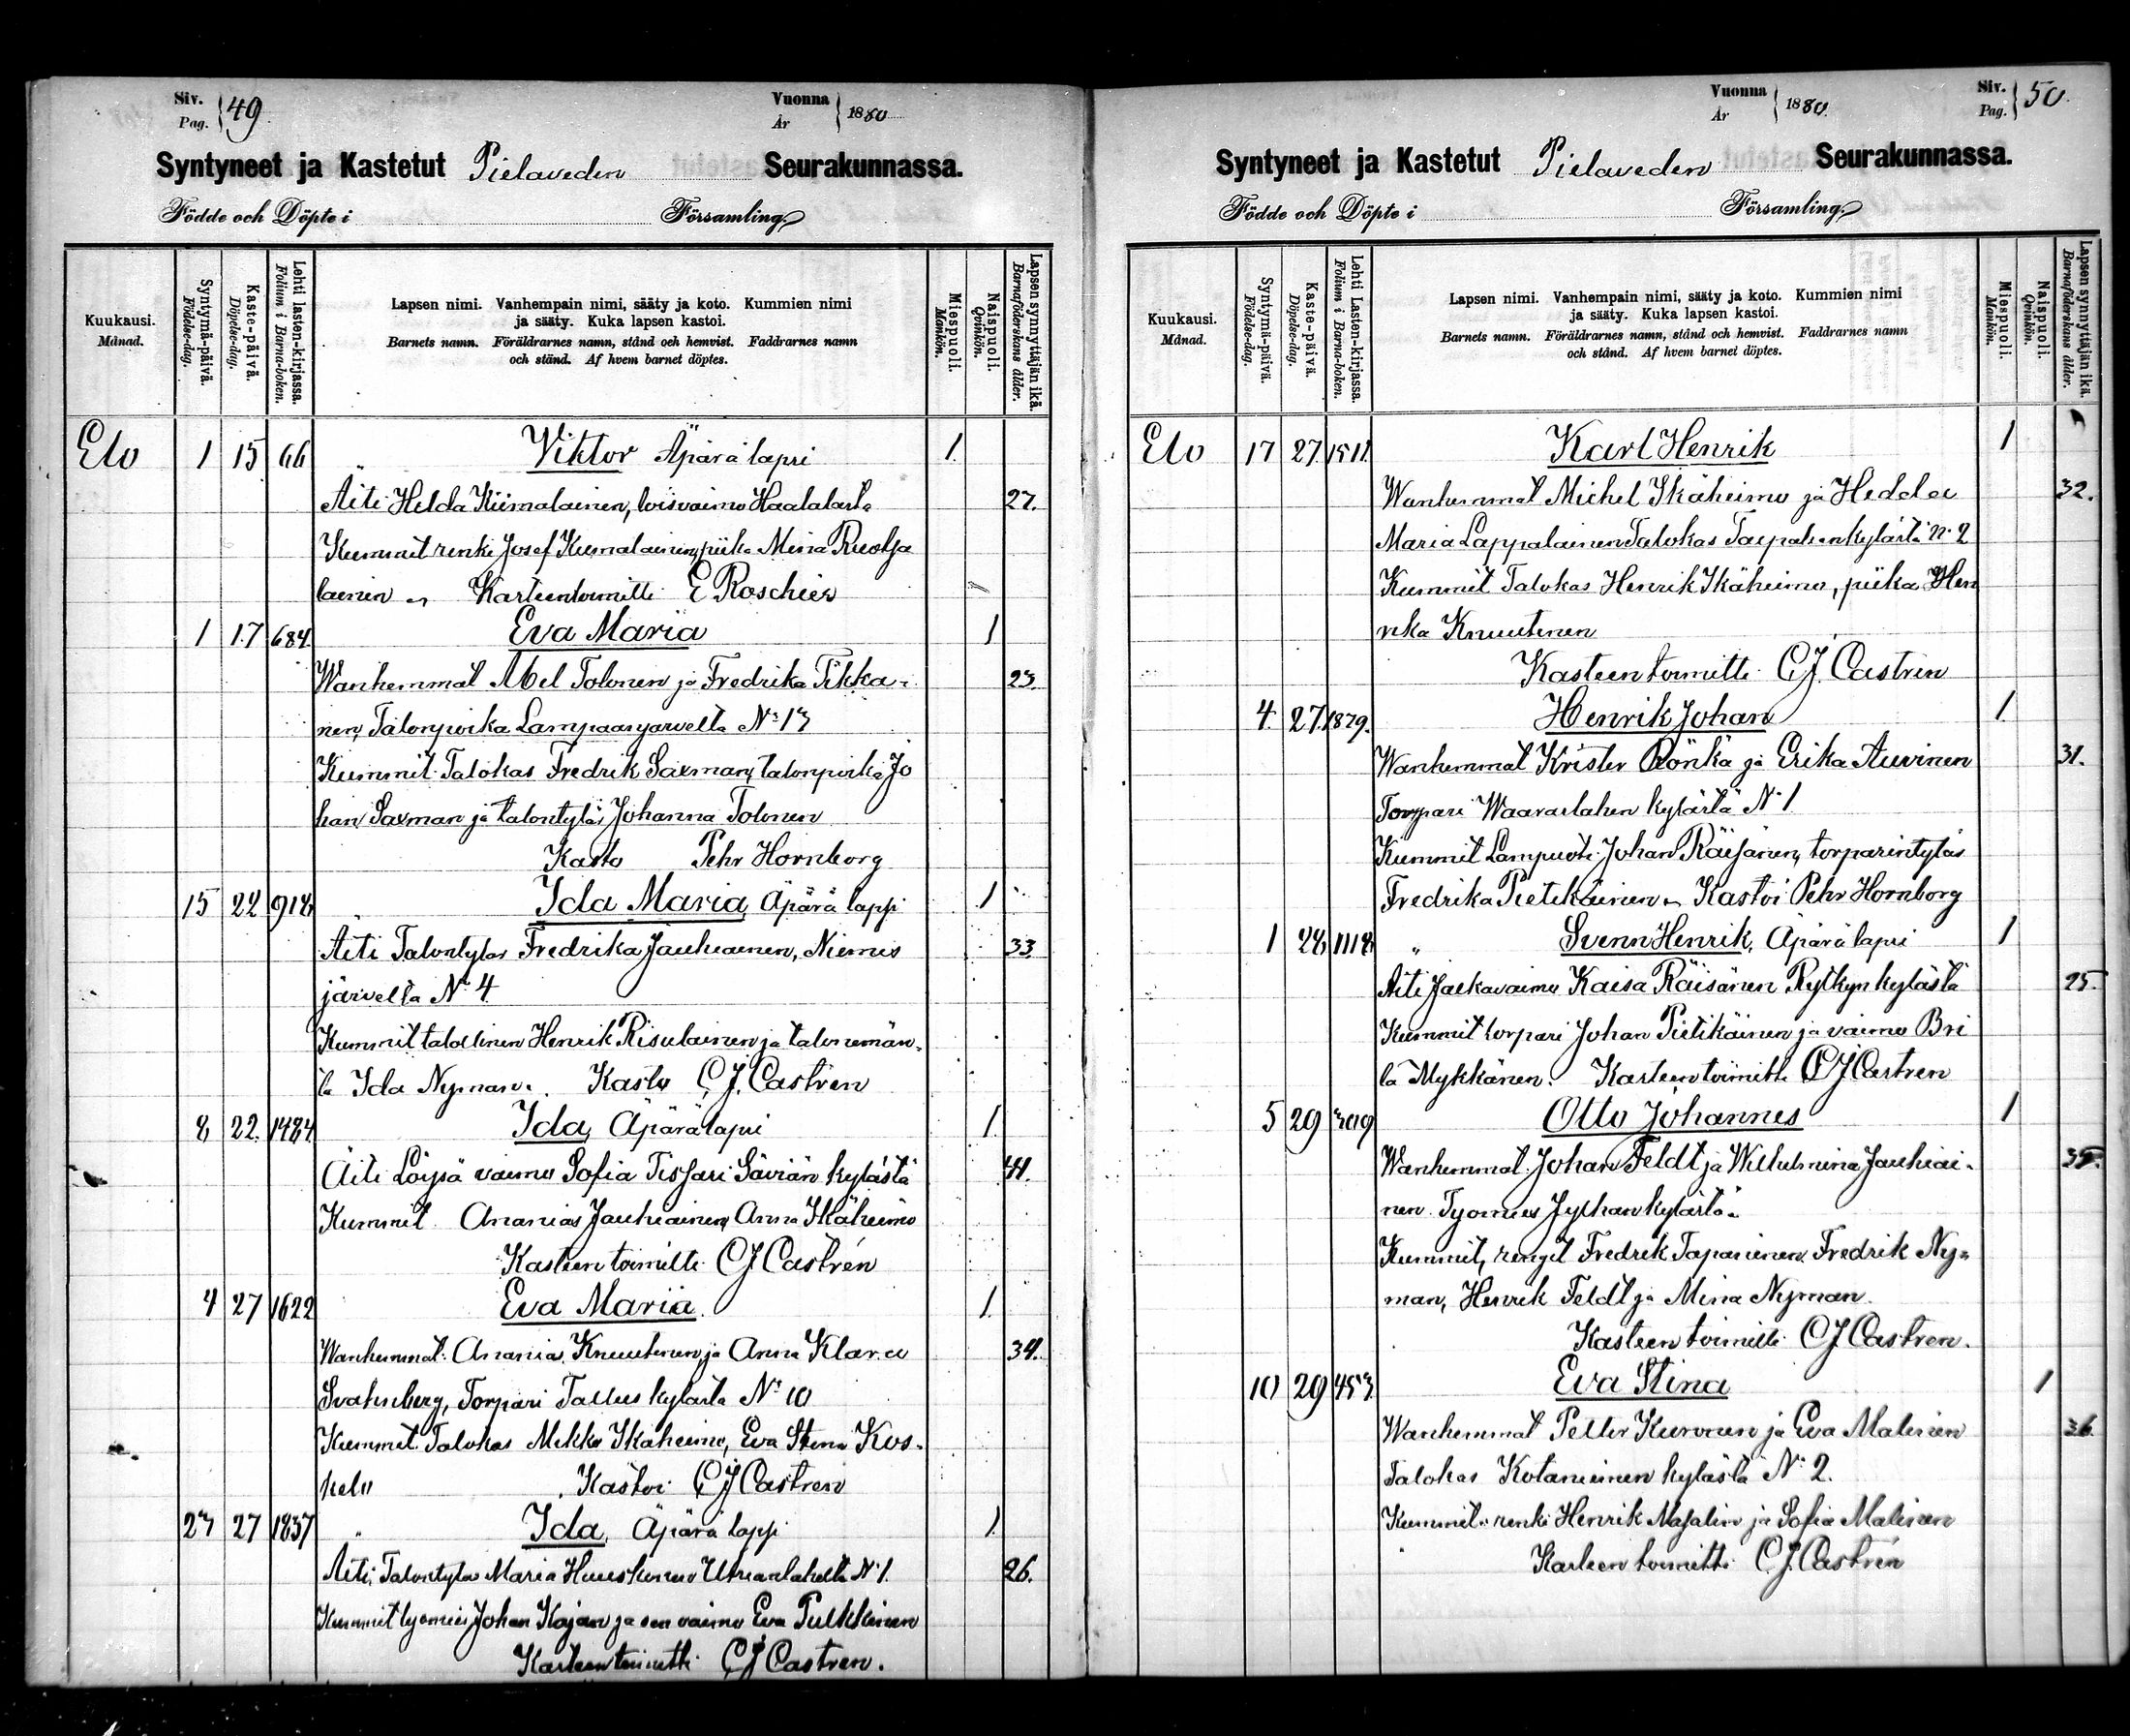 Siv.
Pag. 49
Vuonna
År 1880
Syntyneet ja Kastetut Pielaveden Seurakunnassa.
Födde och Döpte i Församling.
Kuukausi.
Månad.
Syntymä-päivä.
Födelse-dag.
Kaste-päivä.
Döpelse-dag.
Lehti lasten-kirjassa.
Folium i Barna-boken.
Lapsen nimi. Vanhempain nimi, sääty ja koto. Kummien nimi
ja sääty. Kuka lapsen kastoi.
Barnets namn. Föräldrarnes namn, stånd och hemvist. Faddrarnes namn
och stånd. Af hvem barnet döptes.
Miespuoli.
Mankön.
Naispuoli.
Qvinkön.
Lapsen synnyttäjän ikä.
Barnaföderskans ålder.
Elo 1 15 66 Viktor Äpärä lapsi 1
Äiti Helda Kiimalainen, loisvaimo 27.
Kummit renki Josef Kiimalainen, piika Mina Ruotsa
lainen Kasteen toimitti E Roschier
1 17 684. Eva Maria 1
Wanhemmat Abel Tolonen ja Fredrika Tikka- 23.
nen, Talonpoika Lampaanjärveltä No 13
Kummit Talokas Fredrik Saxman, talonpoika Jo
han Saxman ja talontytär Johanna Tolonen
Kasto Pehr Hornborg
15 22 918 Ida Maria, Äpärä lapsi 1
Äiti Talontytär Fredrika Jauhiainen, Niemis 33
järveltä No 4
Kummit talollinen Henrik Risulainen ja talonemän-
tä Ida Nyman. Kasto C.J. Castrén
8 22. 1484 Ida, Äpärälapsi 1.
Äiti Löysä vaimo Sofia Tissari Säviän kylästä 41.
Kummit Ananias Jauhiainen, Anna Ikäheimo
Kasteen toimitti CJ Castrén
4 27 1622 Eva Maria. 1.
Wanhemmat: Ananias Knuutinen, ja Anna Klara 34.
Svahnberg, Torpari Tallus kylästä No 10
Kummit. Talokas Mikko Ikäheimo, Eva Stina Kos-
kelo Kastoi CJ Castrén
23 27 1837 Ida, Äpärä lapsi 1.
Äiti. Talontytär Maria Huuskonen No 1. 26.
Kummit työmies Johan Kajan ja sen vaimo Eva Pulkkinen
Kasteen toimitti CJ Castrén.
Vuonna
År 1880.
Siv.
Pag. 50
Syntyneet ja Kastetut Pielaveden Seurakunnassa.
Födde och Döpte i Församling.
Kuukausi.
Månad.
Syntymä-päivä.
Födelse-dag.
Kaste-päivä.
Döpelse-dag.
Lehti Lasten-kirjassa.
Folium i Barna-boken.
Lapsen nimi. Vanhempain nimi, sääty ja koto. Kummien nimi
ja sääty. Kuka lapsen kastoi.
Barnets namn. Föräldrarnes namn, stånd och hemvist. Faddrarnes namn
och stånd. Af hvem barnet döptes.
Miespuoli.
Mankön.
Naispuoli.
Qvinkön.
Lapsen synnyttäjän ikä.
Barnaföderskans ålder.
Elo 17 27. 1511. Karl Henrik 1
Wanhemmat Michel Ikäheimo ja Hedda 32.
Maria Lappalainen Talokas Taipaleen kylästä No 2
Kummit Talokas Henrik Ikäheimo, piika Hen
rika Knuutinen
Kasteen toimitti CJ. Castrén
4. 27. 1879. Henrik Johan 1.
Wanhemmat Krister Rönkä ja Erika Auvinen 31.
Torpari Waaraslahen kylästä No 1
Kummit Lampuoti Johan Räisänen, torparintytär
Fredrika Pietikäinen Kastoi Pehr Hornborg
1 28 1118 Svenn Henrik, Äpärä lapsi 1
Äiti Jaakavaimo Kaisa Räisänen Rytkyn kylästä 25.
Kummit torpari Johan Pietikäinen ja vaimo Bri
ta Mykkänen. Kasteen toimitti CJ Castren
5 29 Otto Johannes 1
Wanhemmat Johan Feldt ja Wilhelmina Jauhiai- 35.
nen. Työmies Jylhän kylästä
Kummit, rengit Fredrik Tapaninen, Fredrik Ny-
man, Henrik Feldt ja Mina Nyman.
Kasteen toimitti CJ Castren.
10 29 453 Eva Stina 1
Wanhemmat Petter Kurvinen ja Eva Malinen 36.
Talokas Kotaniemen kylästä No 2.
Kummit renki Henrik Masalin ja Sofia Malinen
Kasteen toimitti C.J. Castrén